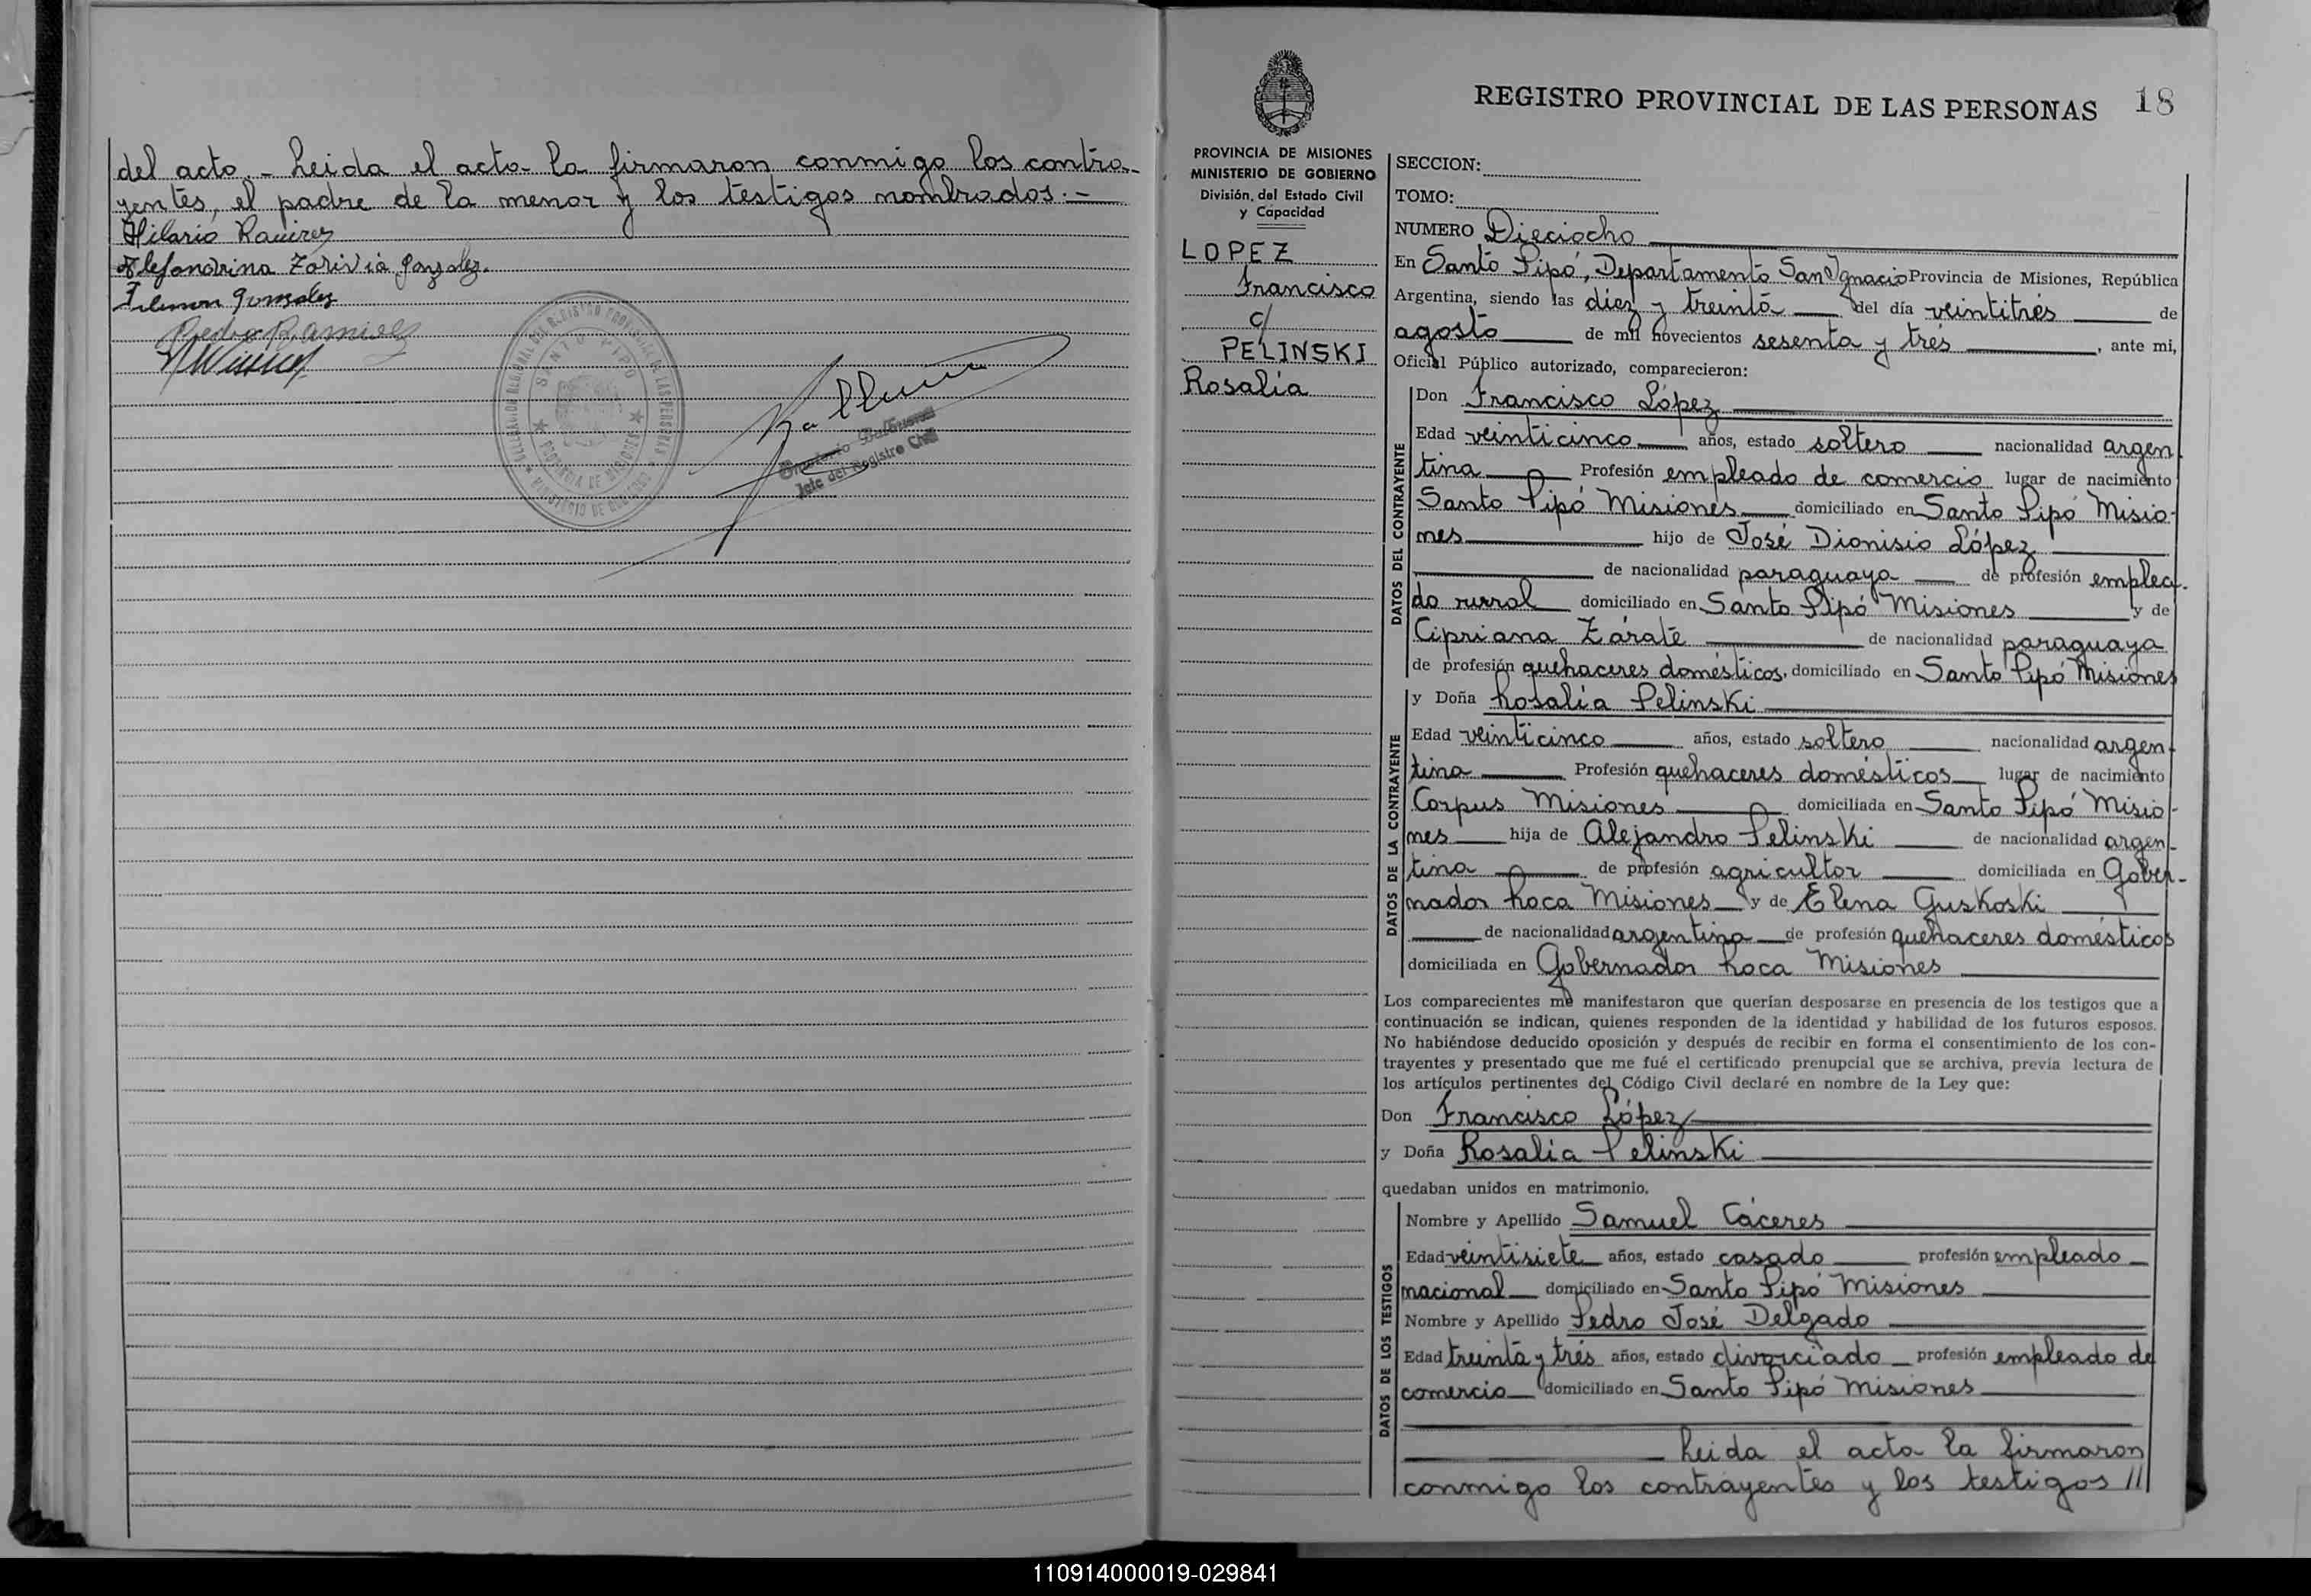 del acto.- Leida el acta la firmaron conmigo los contra-
yentes, el padre de la menor y los testigos nombrados.-
Hilario Ramirez
Alejandrina Zorivia Gonzalez.
Filemon Gonzalez
Pedro Ramirez
SANTO PIPO
PROVINCIA DE MISIONES
Jefe del Registro Civil
REGISTRO PROVINCIAL DE LAS PERSONAS 18
PROVINCIA DE MISIONES
MINISTERIO DE GOBIERNO
División del Estado Civil
y Capacidad
LOPEZ
Francisco
c/
PELINSKI
Rosalía
SECCION:
TOMO:
NUMERO Dieciocho
En Santo Pipó, Departamento San Ignacio Provincia de Misiones, República
Argentina, siendo las diez y treinta del día veintitrés de
agosto de mil novecientos sesenta y tres, ante mi,
Oficial Público autorizado, comparecieron:
DATOS DEL CONTRAYENTE
Don Francisco López
Edad veinticinco años, estado soltero nacionalidad argen-
tina Profesión empleado de comercio lugar de nacimiento
Santo Pipó Misiones domiciliado en Santo Pipó Misio-
nes hijo de José Dionisio López
de nacionalidad paraguaya de profesión emplea-
do rurral domiciliado en Santo Pipó Misiones y de
Cipriana Zárate de nacionalidad paraguaya
de profesión quehaceres domésticos, domiciliado en Santo Pipó Misiones
DATOS DE LA CONTRAYENTE
y Doña Rosalía Pelinski
Edad veinticinco años, estado soltero nacionalidad argen-
tina Profesión quehaceres domésticos lugar de nacimiento
Corpus Misiones domiciliada en Santo Pipó Misio-
nes hija de Alejandro Pelinski de nacionalidad argen-
tina de profesión agricultor domiciliada en Gober-
nador Roca Misiones y de Elena Guskoski
de nacionalidad argentina de profesión quehaceres domésticos
domiciliada en Gobernador Roca Misiones
Los comparecientes me manifestaron que querían desposarse en presencia de los testigos que a
continuación se indican, quienes responden de la identidad y habilidad de los futuros esposos.
No habiéndose deducido oposición y después de recibir en forma el consentimiento de los con-
trayentes y presentado que me fué el certificado prenupcial que se archiva, previa lectura de
los artículos pertinentes del Código Civil declaré en nombre de la Ley que:
Don Francisco López
y Doña Rosalía Pelinski
quedaban unidos en matrimonio.
DATOS DE LOS TESTIGOS
Nombre y Apellido Samuel Cáceres
Edad veintisiete años, estado casado profesión empleado
nacional domiciliado en Santo Pipó Misiones
Nombre y Apellido Pedro José Delgado
Edad treinta y trés años, estado divorciado profesión empleado de
comercio domiciliado en Santo Pipó Misiones
Leida el acta la firmaron
conmigo los contrayentes y los testigos //
110914000019-029841